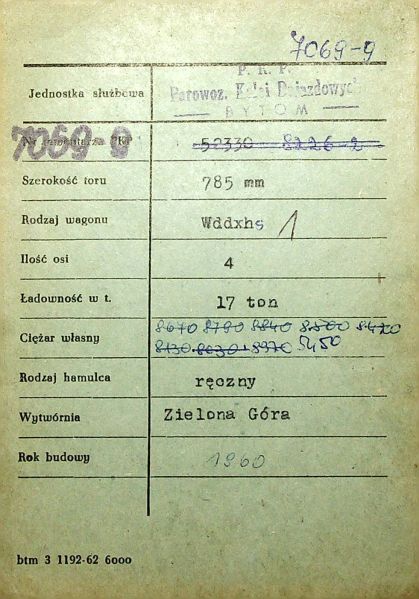 7069-9
Jednostka służbowa
P. K. P.
Parowoz. Kolei Dojazdowych
BYTOM
7069-9
Nr inwentarza PKP 52330 8226-2
Szerokość toru 785 mm
Rodzaj wagonu Wddxhs 1
Ilość osi 4
Ładowność w t. 17 ton
Ciężar własny
8670 8700 8840 8500 8420
8130 8030 8970 5450
Rodzaj hamulca ręczny
Wytwórnia Zielona Góra
Rok budowy 1960
btm 3 1192-62 6000